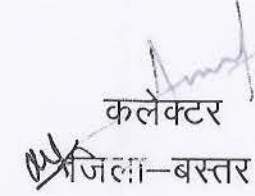 कलेक्टर
जिला–बस्तर